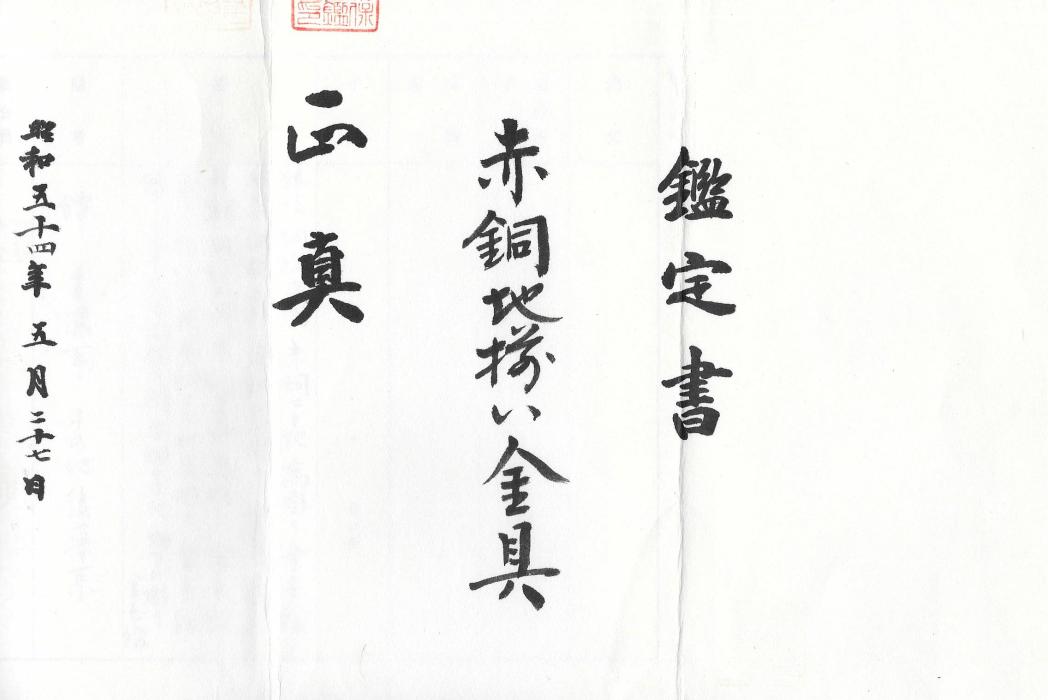 鑑定書
赤銅地揃い金具
正真
昭和五十四年五月二十七日